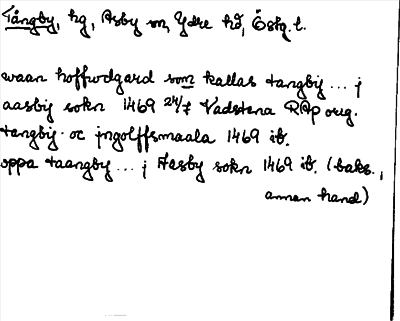 Tångby, hg, Asby sn, Ydre hd, Östg. l.
waan hoffwdgard som kallas tangby ... j
aasby sokn 1469 24/7 Vadstena RAp orig.
tangby oc jngolffsmaala 1469 ib.
oppa taangby ... j Aasby sokn 1469 ib. (baks.,
annan hand)